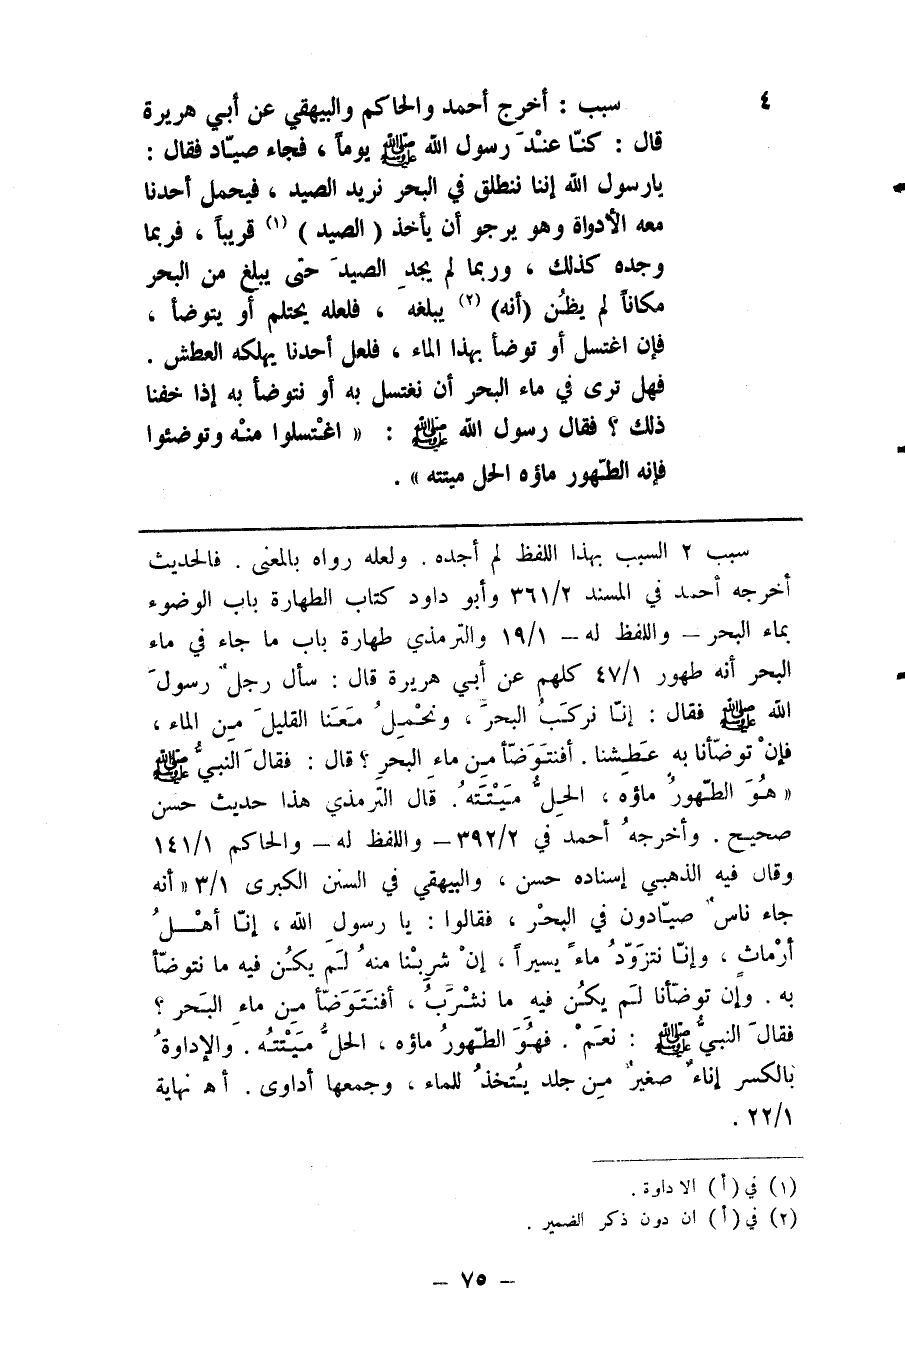 ٤
سبب : أخرج أحمد والحاكم والبيهقي عن أبي هريرة
قال : كنّا عنْدَ رسول الله ﷺ يوماً ، فجاء صيّاد فقال :
يارسول الله إننا ننطلق في البحر نريد الصيد ، فيحمل أحدنا
معه الأدواة وهو يرجو أن يأخذ ( الصيد ) (١) قريباً ، فربما
وجده كذلك ، وربما لم يجدِ الصيدَ حتى يبلغ من البحر
مكاناً لم يظُن (أنه) (٢) يبلغه ، فلعله يحتلم أو يتوضأ ،
فإن اغتسل أو توضأ بهذا الماء ، فلعل أحدنا يهلكه العطش .
فهل ترى في ماء البحر أن نغتسل به أو نتوضأ به إذا خفنا
ذلك ؟ فقال رسول الله ﷺ : « اغْتسلوا منْه وتوضئوا
فإنه الطّهور ماؤه الحل ميتته » .
سبب ٢ السبب بهذا اللفظ لم أجده . ولعله رواه بالمعنى . فالحديث
أخرجه أحمد في المسند ٣٦١/٢ وأبو داود كتاب الطهارة باب الوضوء
بماء البحر – واللفظ له – ١٩/١ والترمذي طهارة باب ما جاء في ماء
البحر أنه طهور ٤٧/١ كلهم عن أبي هريرة قال : سأل رجلٌ رسولَ
الله ﷺ فقال : إنّا نركَبُ البحرَ ، ونحْمِلُ مَعَنا القليلَ مِن الماء ،
فإنْ توضّأنا به عَطِشنا . أفنتَوَضّأ مِن ماءِ البحرِ ؟ قال : فقالَ النبيُّ ﷺ
« هُوَ الطّهورُ ماؤه ، الحِلُّ مَيْتَتَهُ . قال الترمذي هذا حديث حسن
صحيح . وأخرجهُ أحمد في ٣٩٢/٢ – واللفظ له – والحاكم ١٤١/١
وقال فيه الذهبي إسناده حسن ، والبيهقي في السنن الكبرى ٣/١ « أنه
جاء ناسٌ صيّادون في البحْر ، فقالوا : يا رسولِ الله ، إنّا أهْلُ
أرْماثٍ ، وإنّا نتزَوّدُ ماءً يسيراً ، إنْ شرِبْنا منهُ لَمْ يكُن فيه ما نتوضّأ
به . وإن توضّأنا لَم يكُن فيهِ ما نشْرَبُ ، أفنَتَوَضّأ مِن ماءِ البَحر ؟
فقالَ النبيُّ ﷺ : نعَمْ . فهُوَ الطّهورُ ماؤه ، الحلُّ مَيْتتُه . والإداوةُ
بالكسر إناءٌ صغيرٌ مِن جلد يُتخذُ للماء ، وجمعها أداوى . أهـ نهاية
٢٢/١ .
(١) في (أ) الاداوة .
(٢) في (أ) ان دون ذكر الضمير .
– ٧٥ –